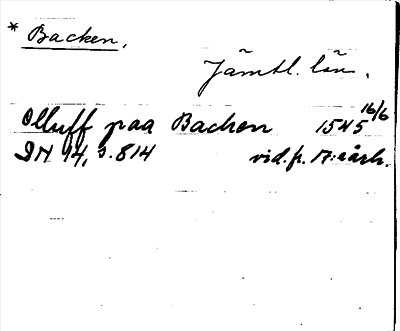 * Backen.
Jämtl. län.
Olluff paa Backen 1545 16/6
DN 14, s. 814 vid. fr. 17:e årh.